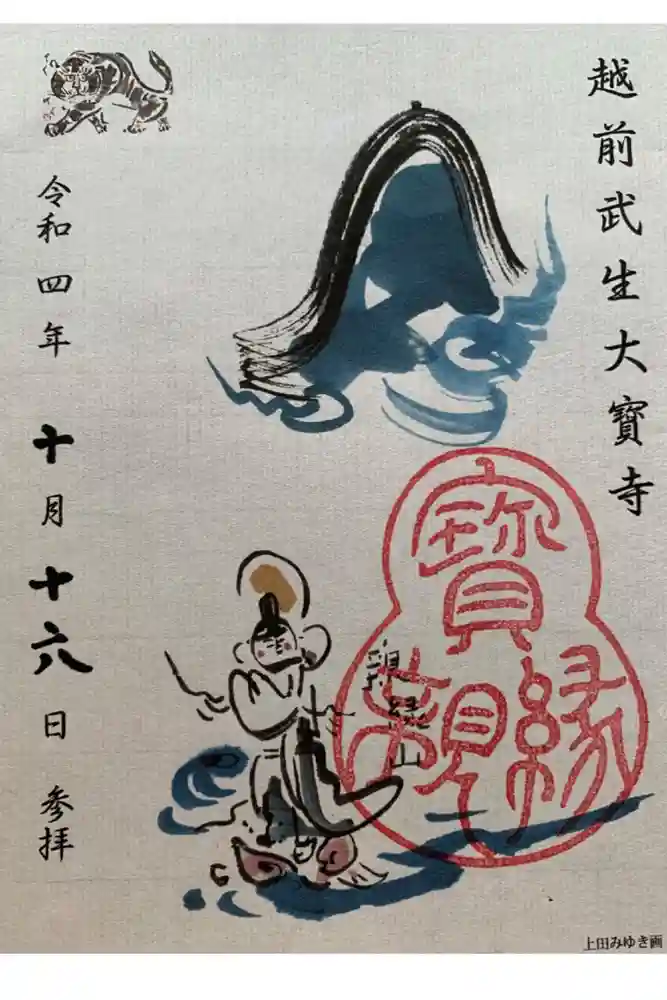 越前武生大寶寺
寶
縁
親
親縁山
令和四年十月十六日参拝
上田みゆき画